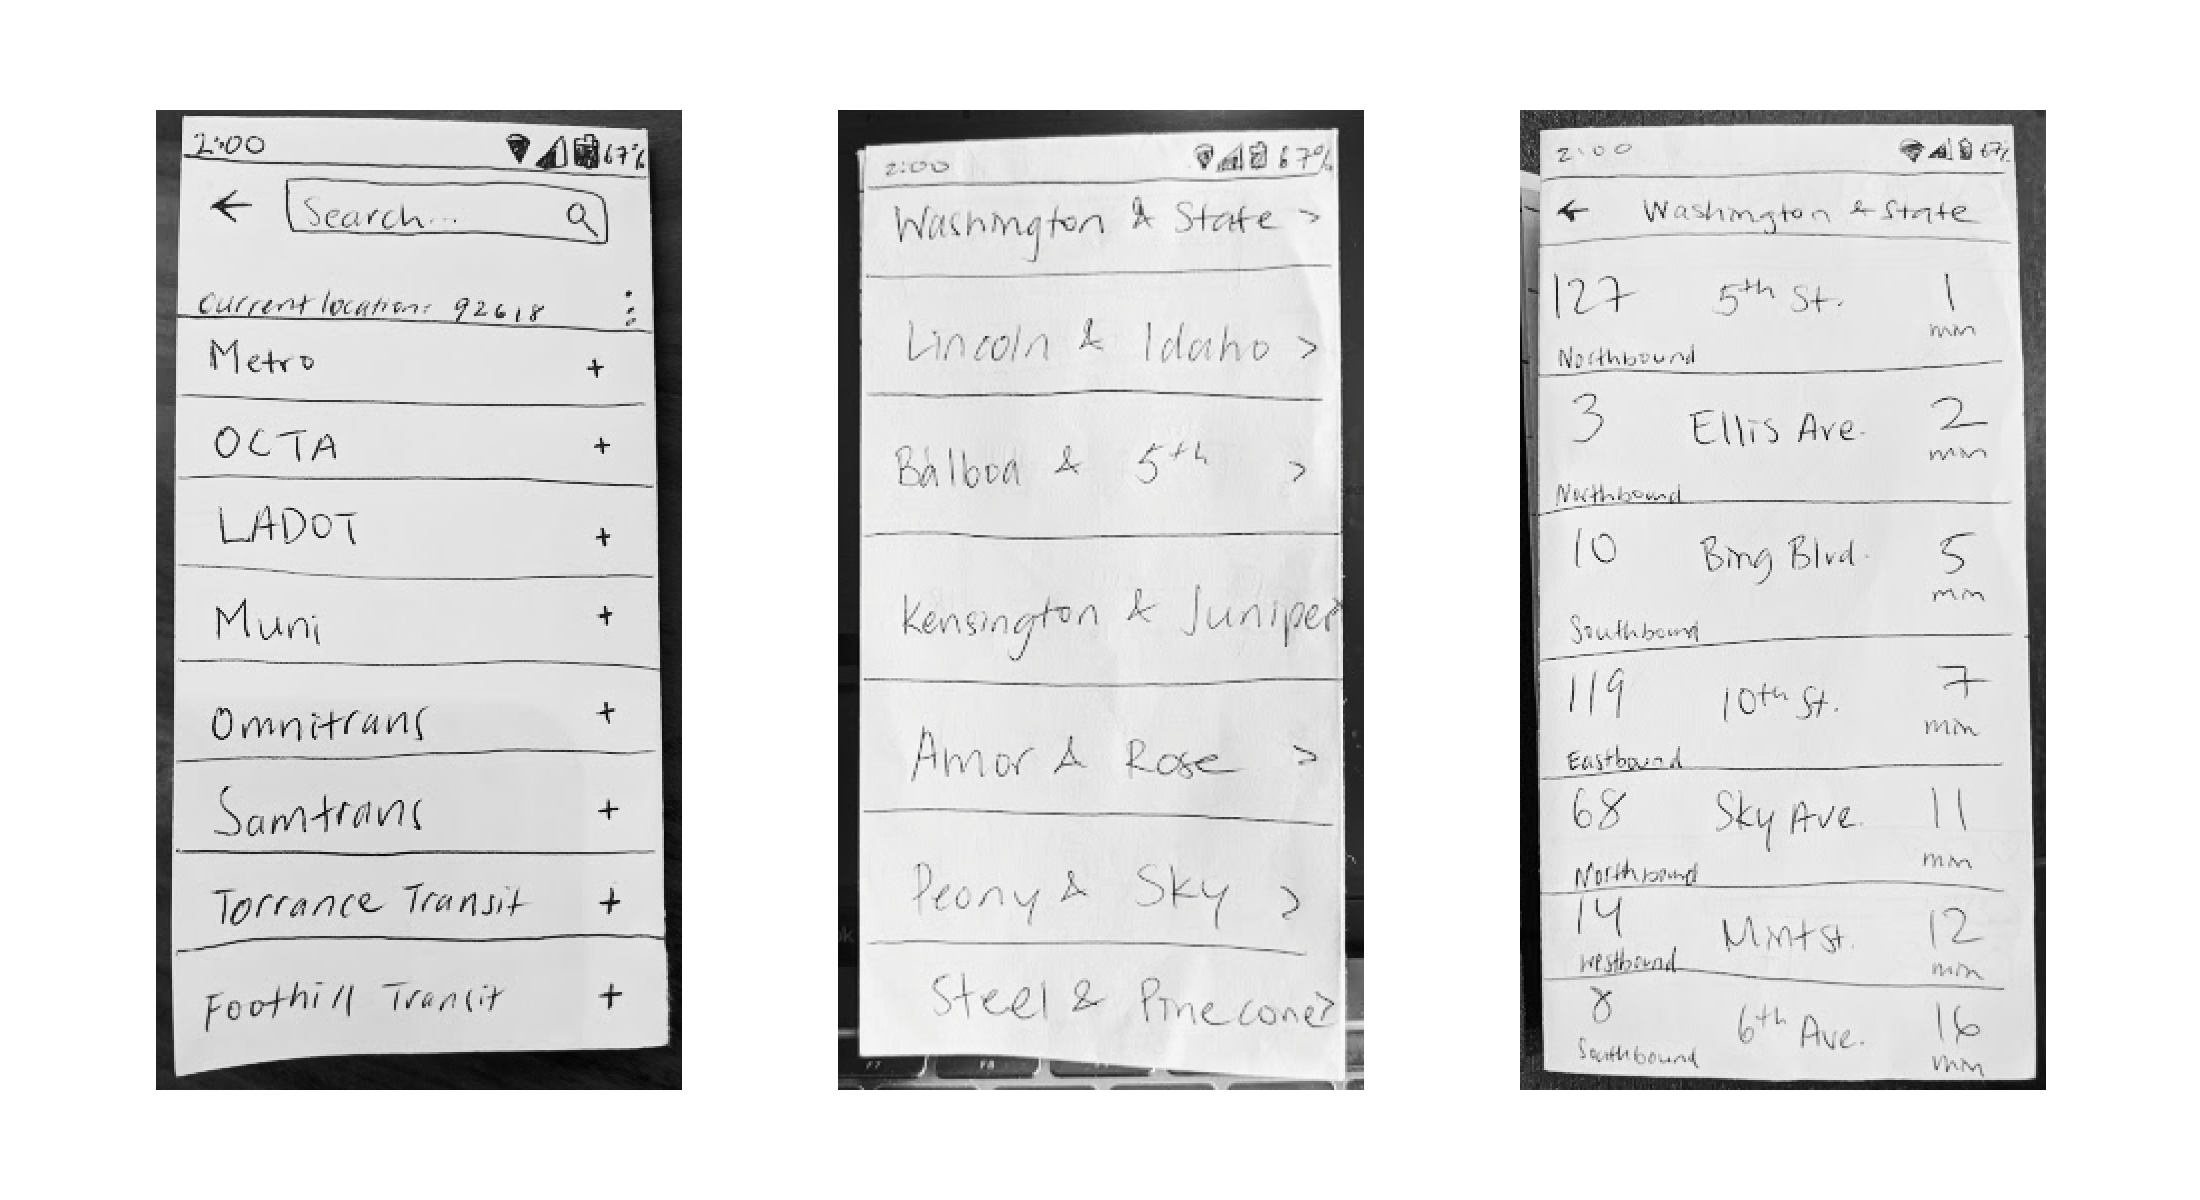 2:00 67%
Search...
Current location: 92618
Metro +
OCTA +
LADOT +
Muni +
Omnitrans +
Samtrans +
Torrance Transit +
Foothill Transit +
2:00 67%
Washington & State >
Lincoln & Idaho >
Balboa & 5th >
Kensington & Juniper >
Amor & Rose >
Peony & Sky >
Steel & Pinecone >
F7 F8
2:00 67%
← Washington & State
127 5th St. 1
min
Northbound
3 Ellis Ave. 2
min
Northbound
10 Bing Blvd. 5
min
Southbound
119 10th St. 7
min
Eastbound
68 Sky Ave. 11
min
Northbound
14 Mint St. 12
Westbound min
8 6th Ave. 16
Southbound min